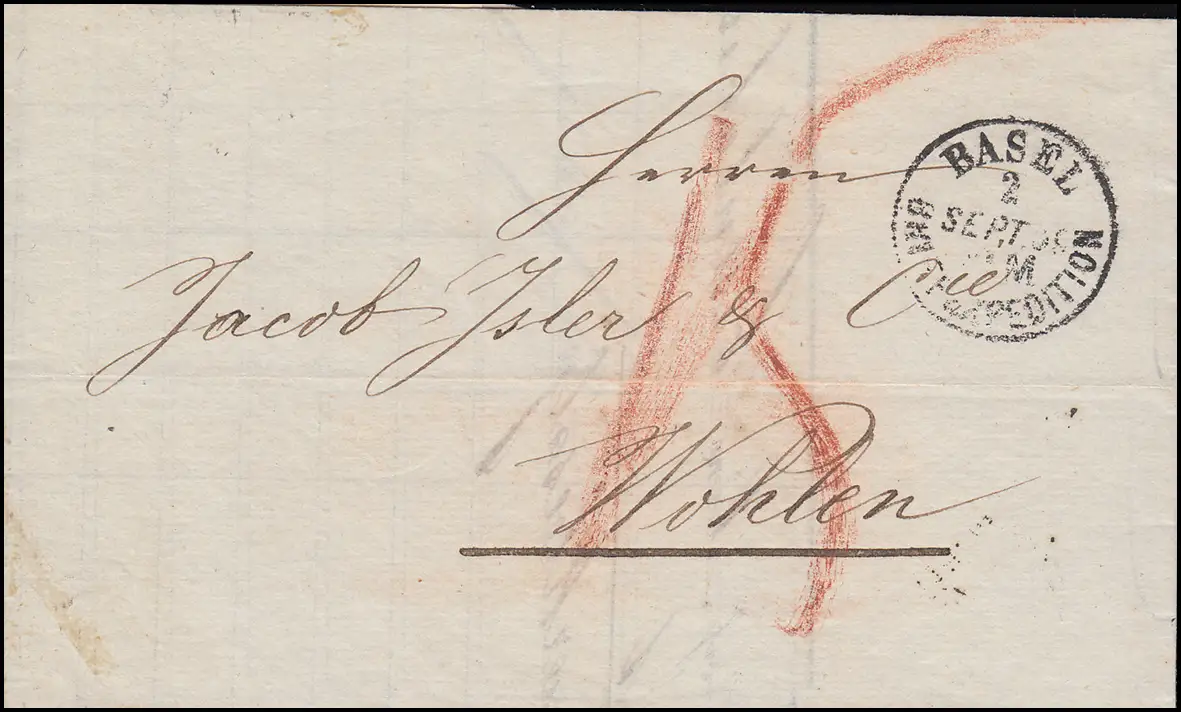 Herren
Jacob Isler & Cie
Wohlen
15
BASEL
2
SEPT
M
EXPEDITION